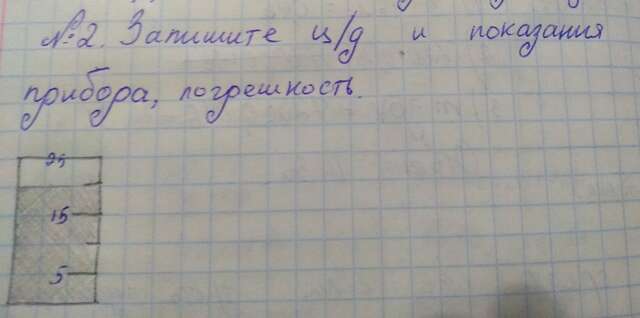 №2. Запишите ц/д и показания
прибора, погрешность.
25
15
5